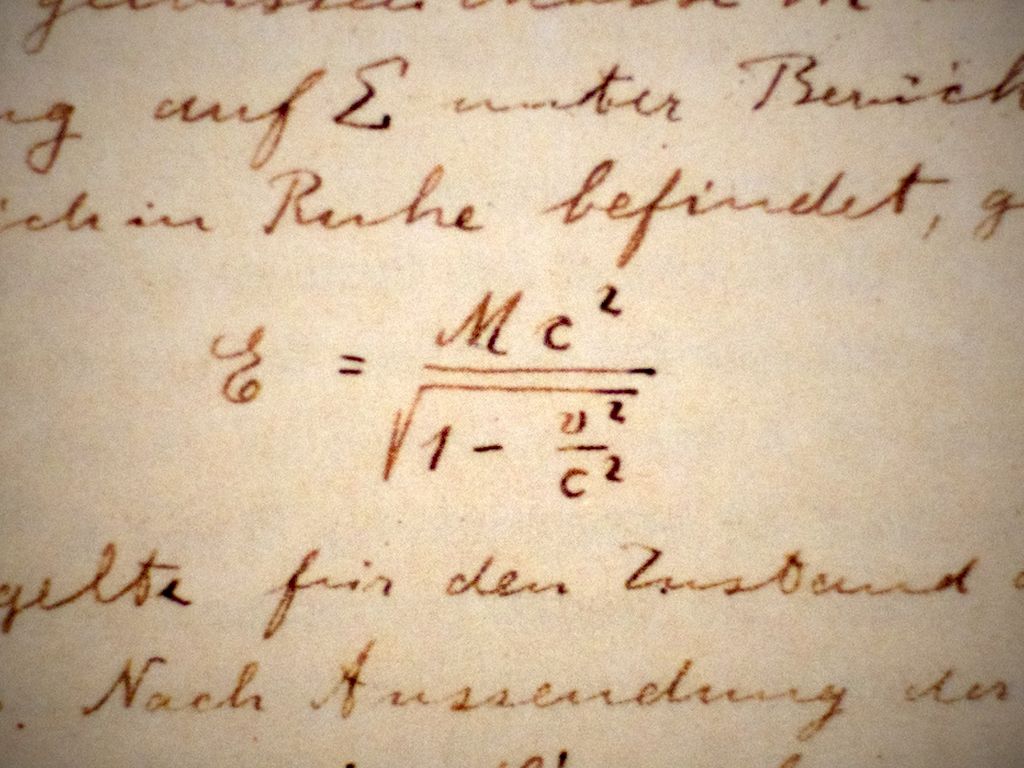 ng auf Σ unter Berück
ich in Ruhe befindet, g
E = Mc² / √(1 - v²/c²)
gelte für den Zustand
. Nach Aussendung der